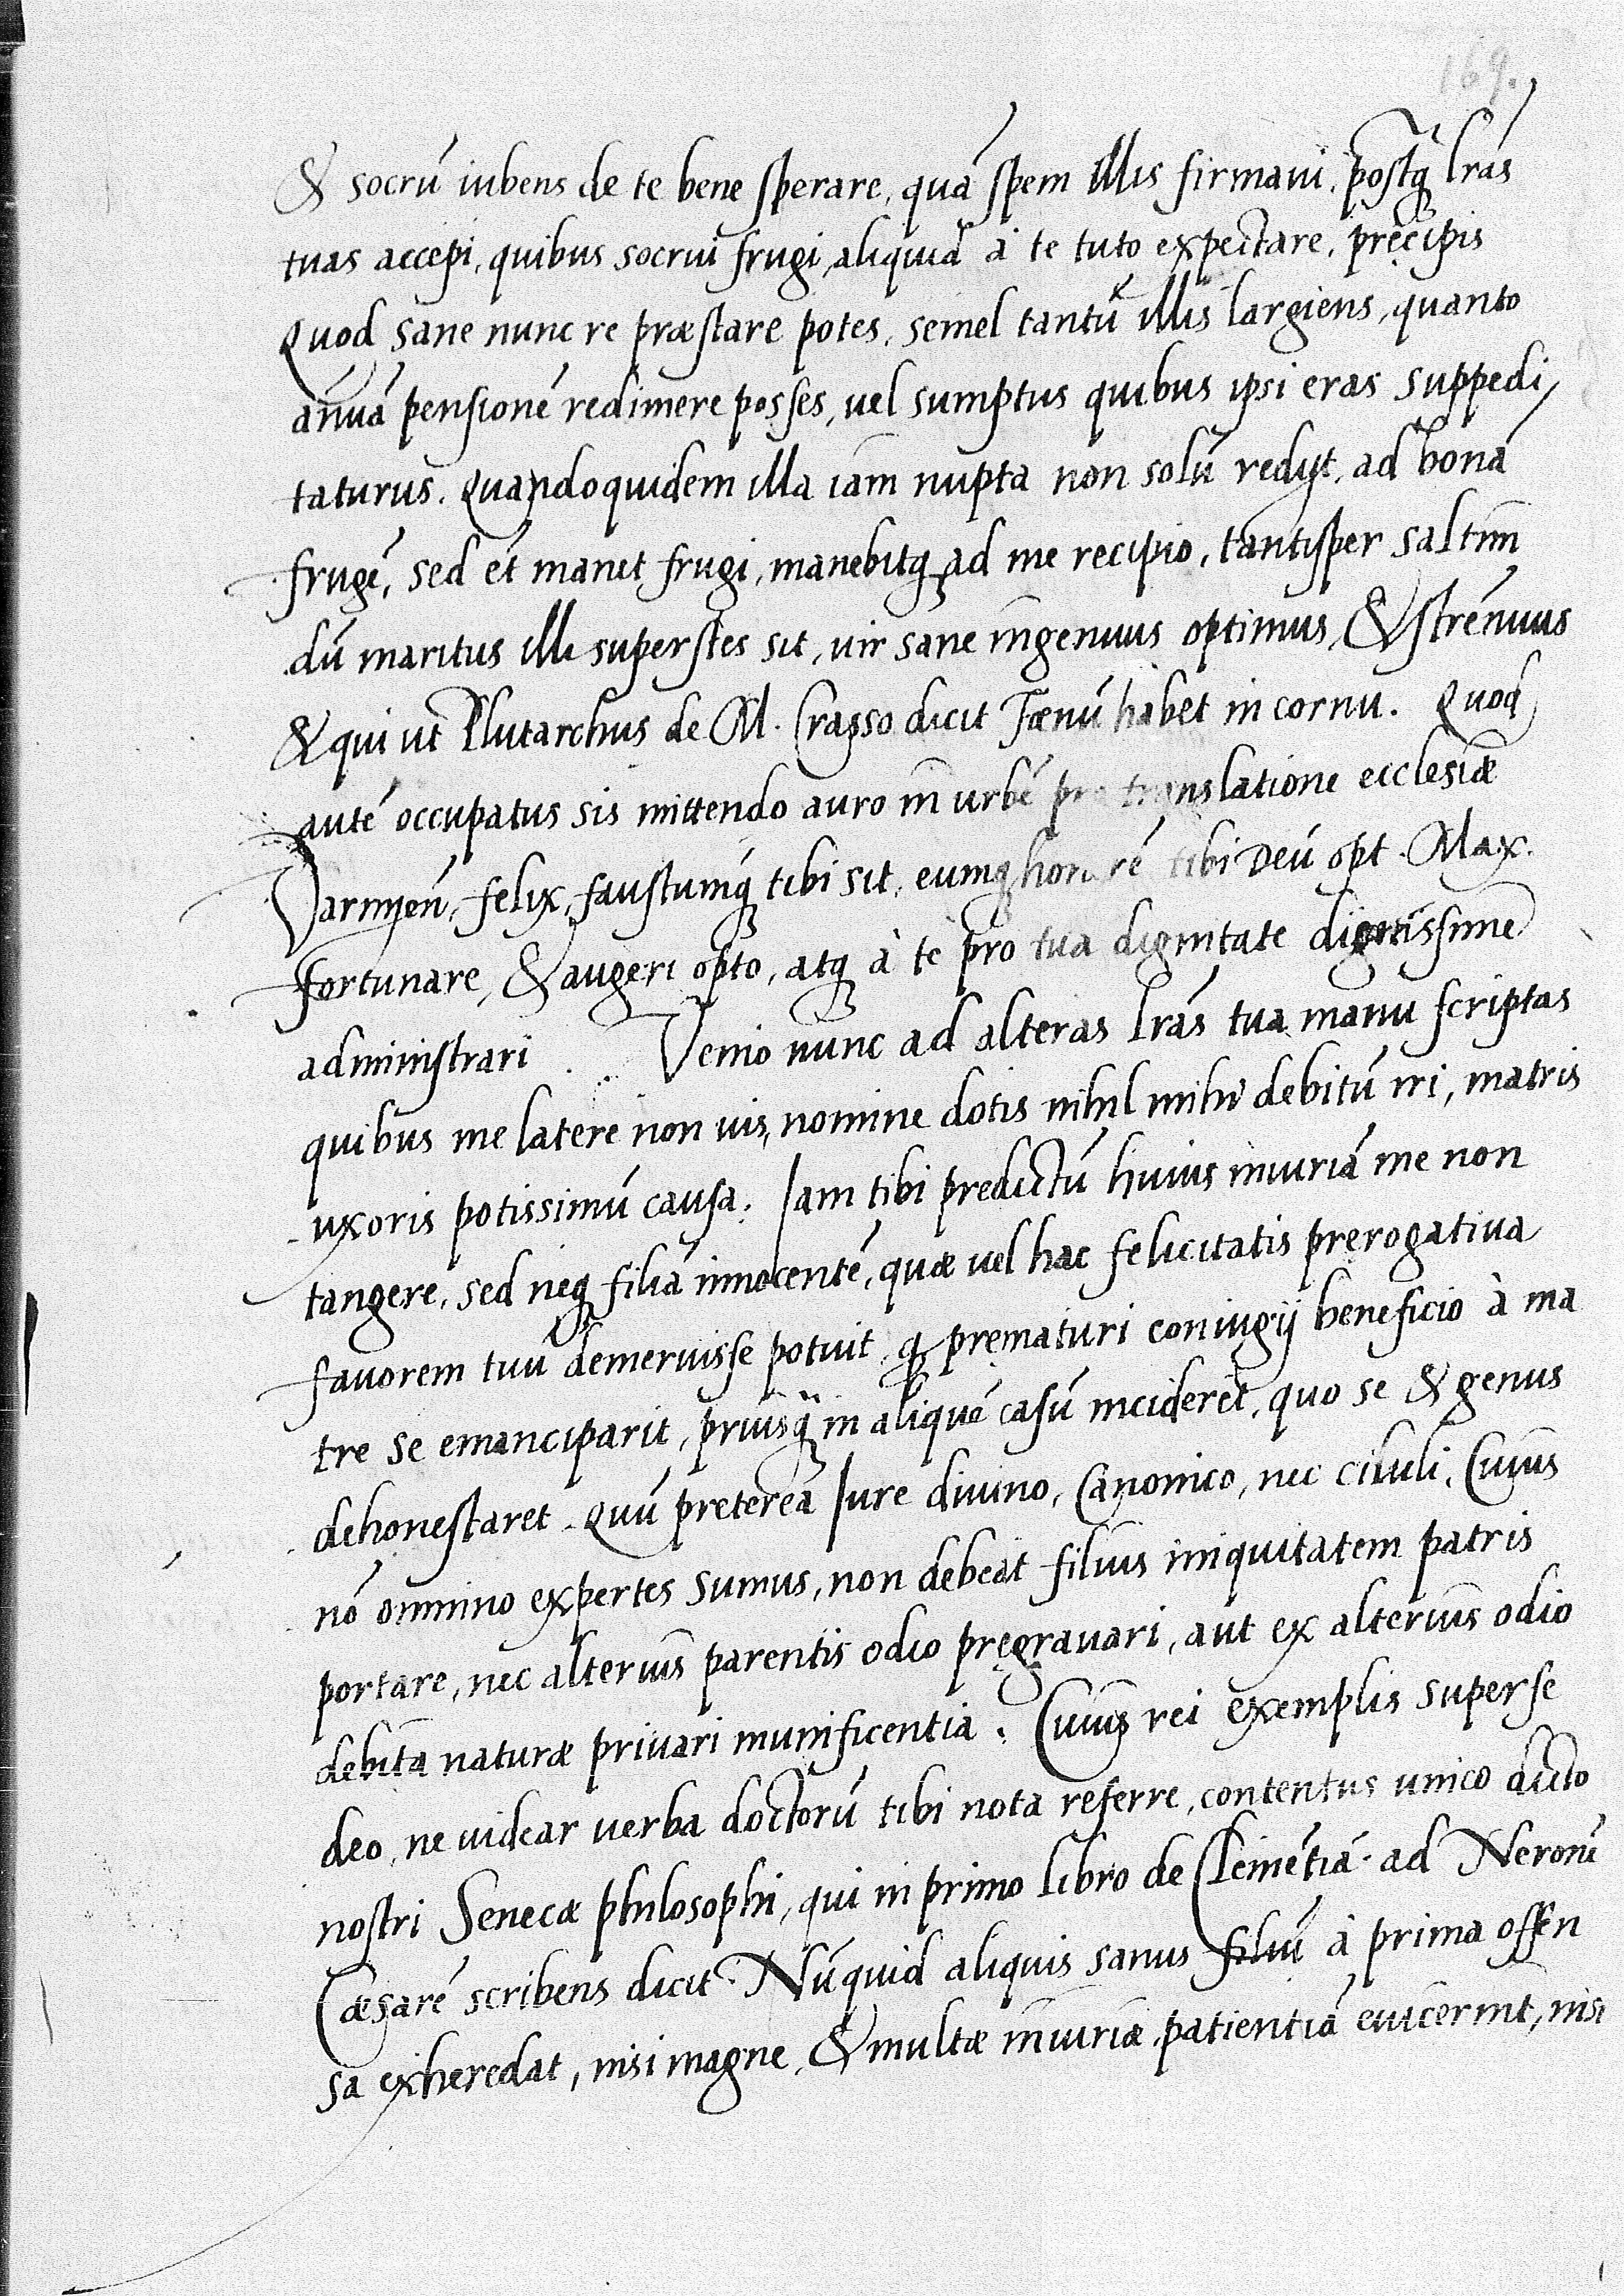 169.
& socrū iubens de te bene sperare, quā spem illis firmaui, postq̃ lr̃as
tuas accepi, quibus socrui frugi, aliquid à te tuto expectare, pręcipis
Quod sane nunc re præstare potes, semel tantū illis largiens, quanto
añuā pensionē redimere posses, uel sumptus quibus ipsi eras suppedi
taturus. Quandoquidem illa iam nupta non solū redijt, ad bonā
frugē, sed et̃ manet frugi, manebitq; ad me recipio, tantisper saltm̃
dū maritus illi superstes sit, uir sane ingenuus optimus, & strenuus
& qui ut Plutarchus de M. Crasso dicit Fœnū habet in cornu. Quod
autē occupatus sis mittendo auro in urbē pro translatione ecclesiæ
Varmień, felix, faustumq; tibi sit, eumq; honorē tibi Deū opt. Max.
fortunare, & augeri opto, atq; à te pro tua dignitate dignissime
administrari. Venio nunc ad alteras lr̃as tua manu scriptas
quibus me latere non uis, nomine dotis nihil mihi debitū iri, matris
uxoris potissimū causa. Iam tibi predictū huius iniuriā me non
tangere, sed neq; filiā innocentē, quæ uel hac felicitatis pręrogatiua
fauorem tuū demeruisse potuit, q̃ pręmaturi coniugij beneficio à ma
tre se emanciparit, priusq̃ in aliquē casū incideret, quo se & genus
dehonestaret. Quū pretereà Iure diuino, Canonico, nec ciuili, Cuius
nō omnino expertes sumus, non debeat filius iniquitatem patris
portare, nec alterius parentis odio pręgrauari, aut ex alterius odio
debita naturæ priuari munificentia. Cuius rei exemplis superse
deo, ne uidear uerba doctorū tibi nota referre, contentus unico dicto
nostri Senecæ philosophi, qui in primo libro de Clemētiā ad Neronē
Cæsarē scribens dicit. Nūquid aliquis sanus filiū à prima offen
sa exheredat, nisi magne, & multæ iniuriæ patientiā euicerint, nisi